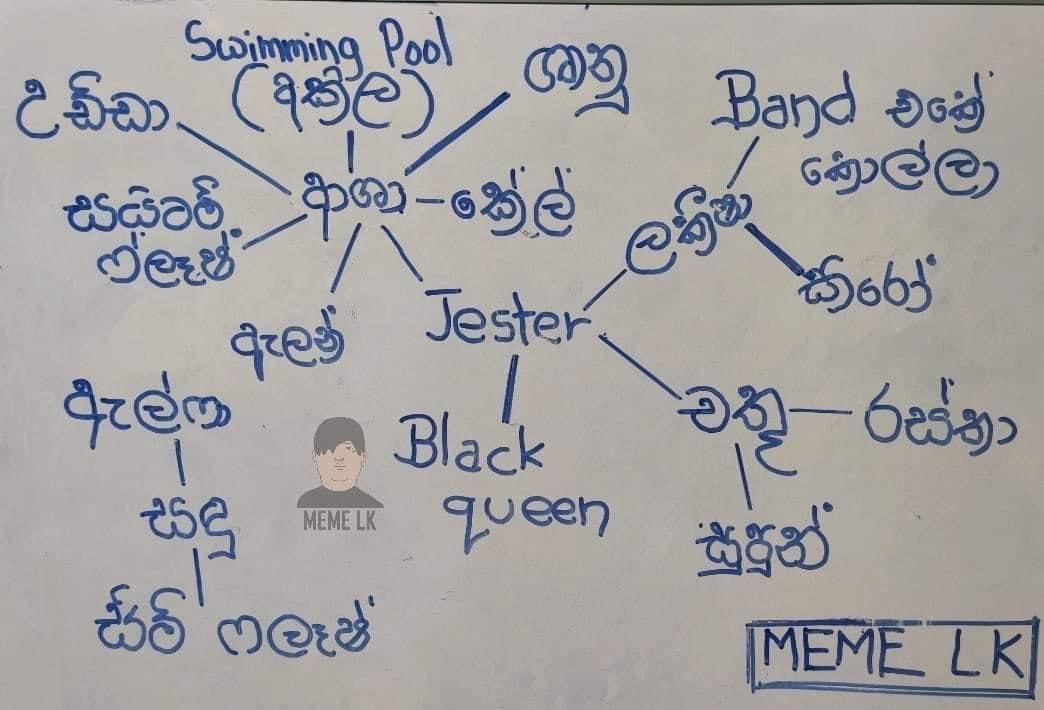 Swimming Pool
(අකිල)
උඩ්ඩා
ශානු
Band එකේ
කොල්ලා
සයිටම්
ෆ්ලෑෂ්
ආශා
කේල්
ලක්‍රිෂා
කිරෝ
ඇලන්
Jester
ඇල්ෆා
Black
queen
චතූ
රස්තා
සඳු
සුපුන්
සිම් ෆලෑෂ්
MEME LK
MEME LK